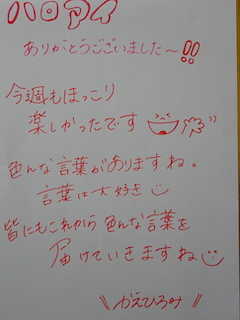 ハロアイ
ありがとうございました〜!!
今週もほっこり
楽しかったです
色んな言葉がありますね。
言葉は大好き
皆にもこれから色んな言葉を
届けていきますね
\\ かえひろみ //